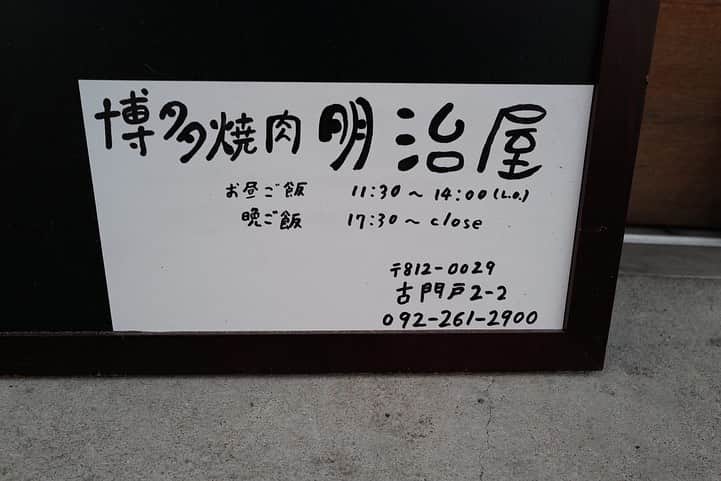 博多焼肉 明治屋
お昼ご飯 11:30～14:00(L.O.)
晩ご飯 17:30～close
〒812-0029
古門戸2-2
092-261-2900